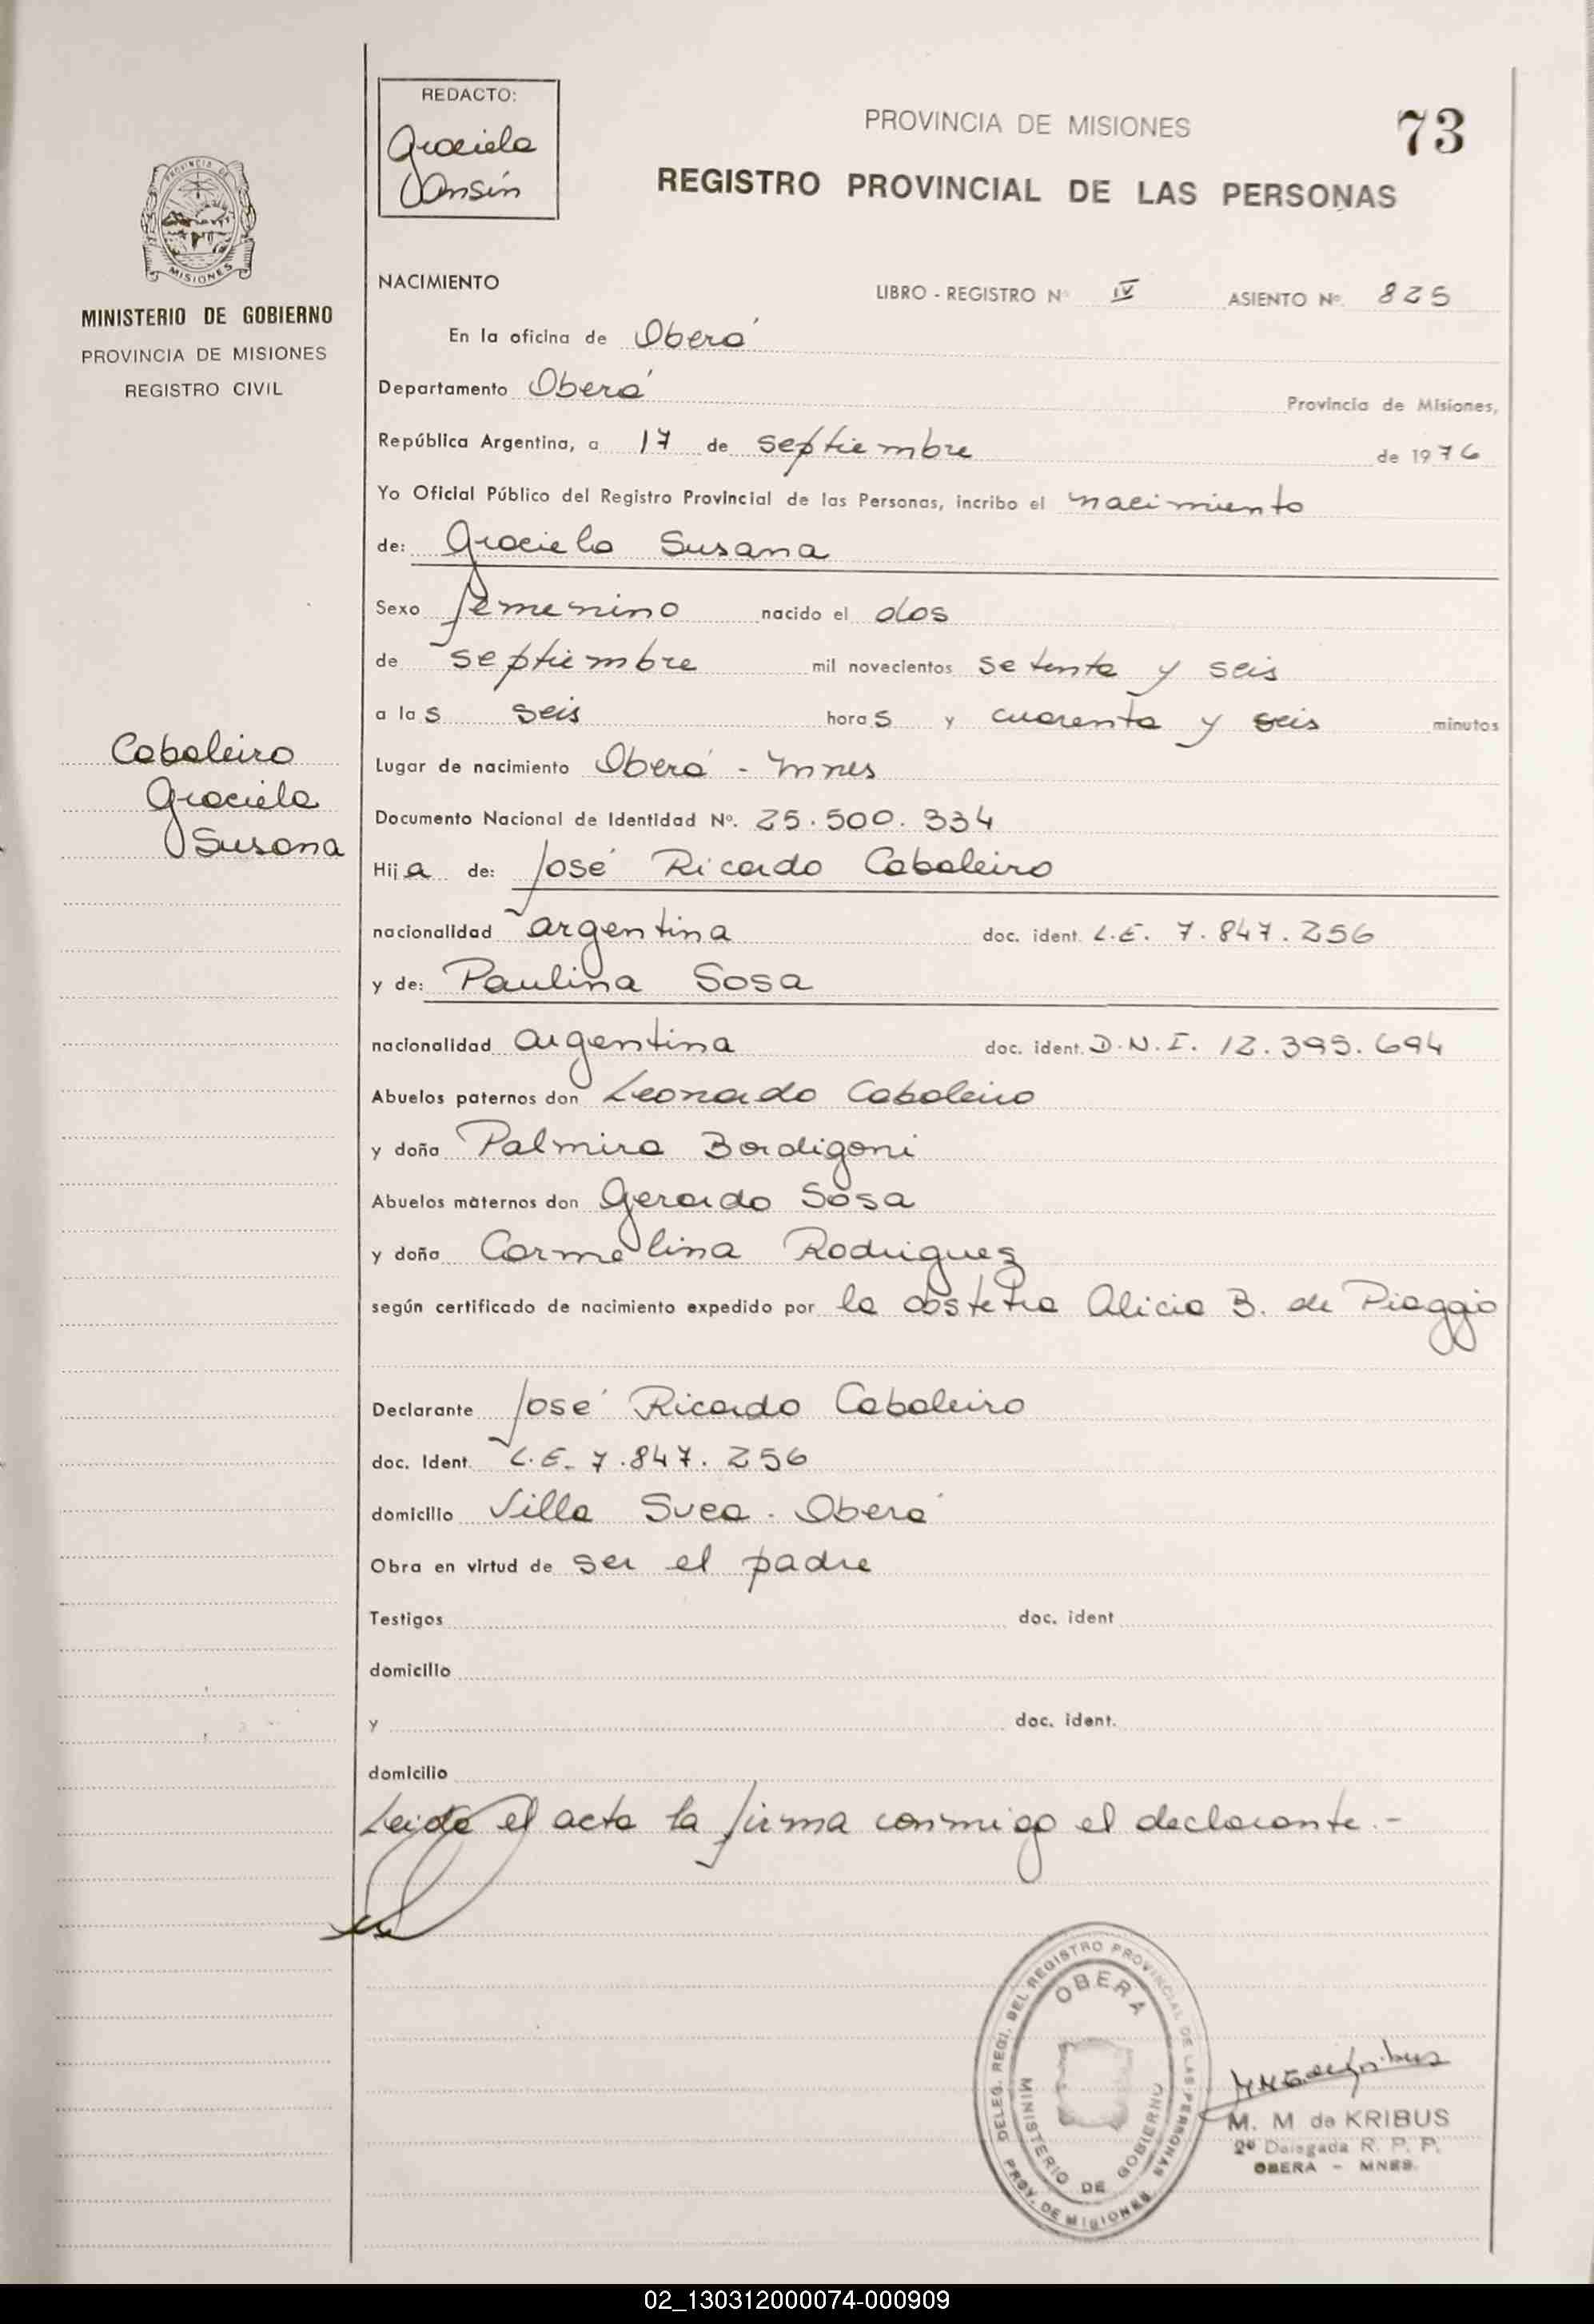 REDACTO:
Graciela
Vansín
PROVINCIA DE MISIONES
73
REGISTRO PROVINCIAL DE LAS PERSONAS
PROVINCIA DE
MISIONES
MINISTERIO DE GOBIERNO
PROVINCIA DE MISIONES
REGISTRO CIVIL
NACIMIENTO
LIBRO - REGISTRO Nº IV ASIENTO Nº 825
En la oficina de Oberá
Departamento Oberá Provincia de Misiones,
República Argentina, a 17 de septiembre de 1976
Yo Oficial Público del Registro Provincial de las Personas, incribo el nacimiento
de: Graciela Susana
Sexo femenino nacido el dos
de septiembre mil novecientos setenta y seis
a las seis horas y cuarenta y seis minutos
Cabaleiro
Graciela
Susana
Lugar de nacimiento Oberá - Mnes
Documento Nacional de Identidad Nº. 25.500.334
Hija de: José Ricardo Cabaleiro
nacionalidad argentina doc. ident. L.E. 7.847.256
y de: Paulina Sosa
nacionalidad argentina doc. ident. D.N.I. 12.395.694
Abuelos paternos don Leonardo Cabaleiro
y doña Palmira Bordigoni
Abuelos maternos don Gerardo Sosa
y doña Carmelina Rodriguez
según certificado de nacimiento expedido por la obstetra Alicia B. de Piaggio
Declarante José Ricardo Cabaleiro
doc. Ident. L.E. 7.847.256
domicilio Villa Svea - Oberá
Obra en virtud de ser el padre
Testigos doc. ident
domicilio
y doc. ident.
domicilio
Leida el acta la firma conmigo el declarante.-
DELEG. REGI. DEL REGISTRO PROVINCIAL DE LAS PERSONAS
OBERA
MINISTERIO DE GOBIERNO
PROV. DE MISIONES
M. M de KRIBUS
2ª Delegada R. P. P.
OBERA - MNES.
02_130312000074-000909